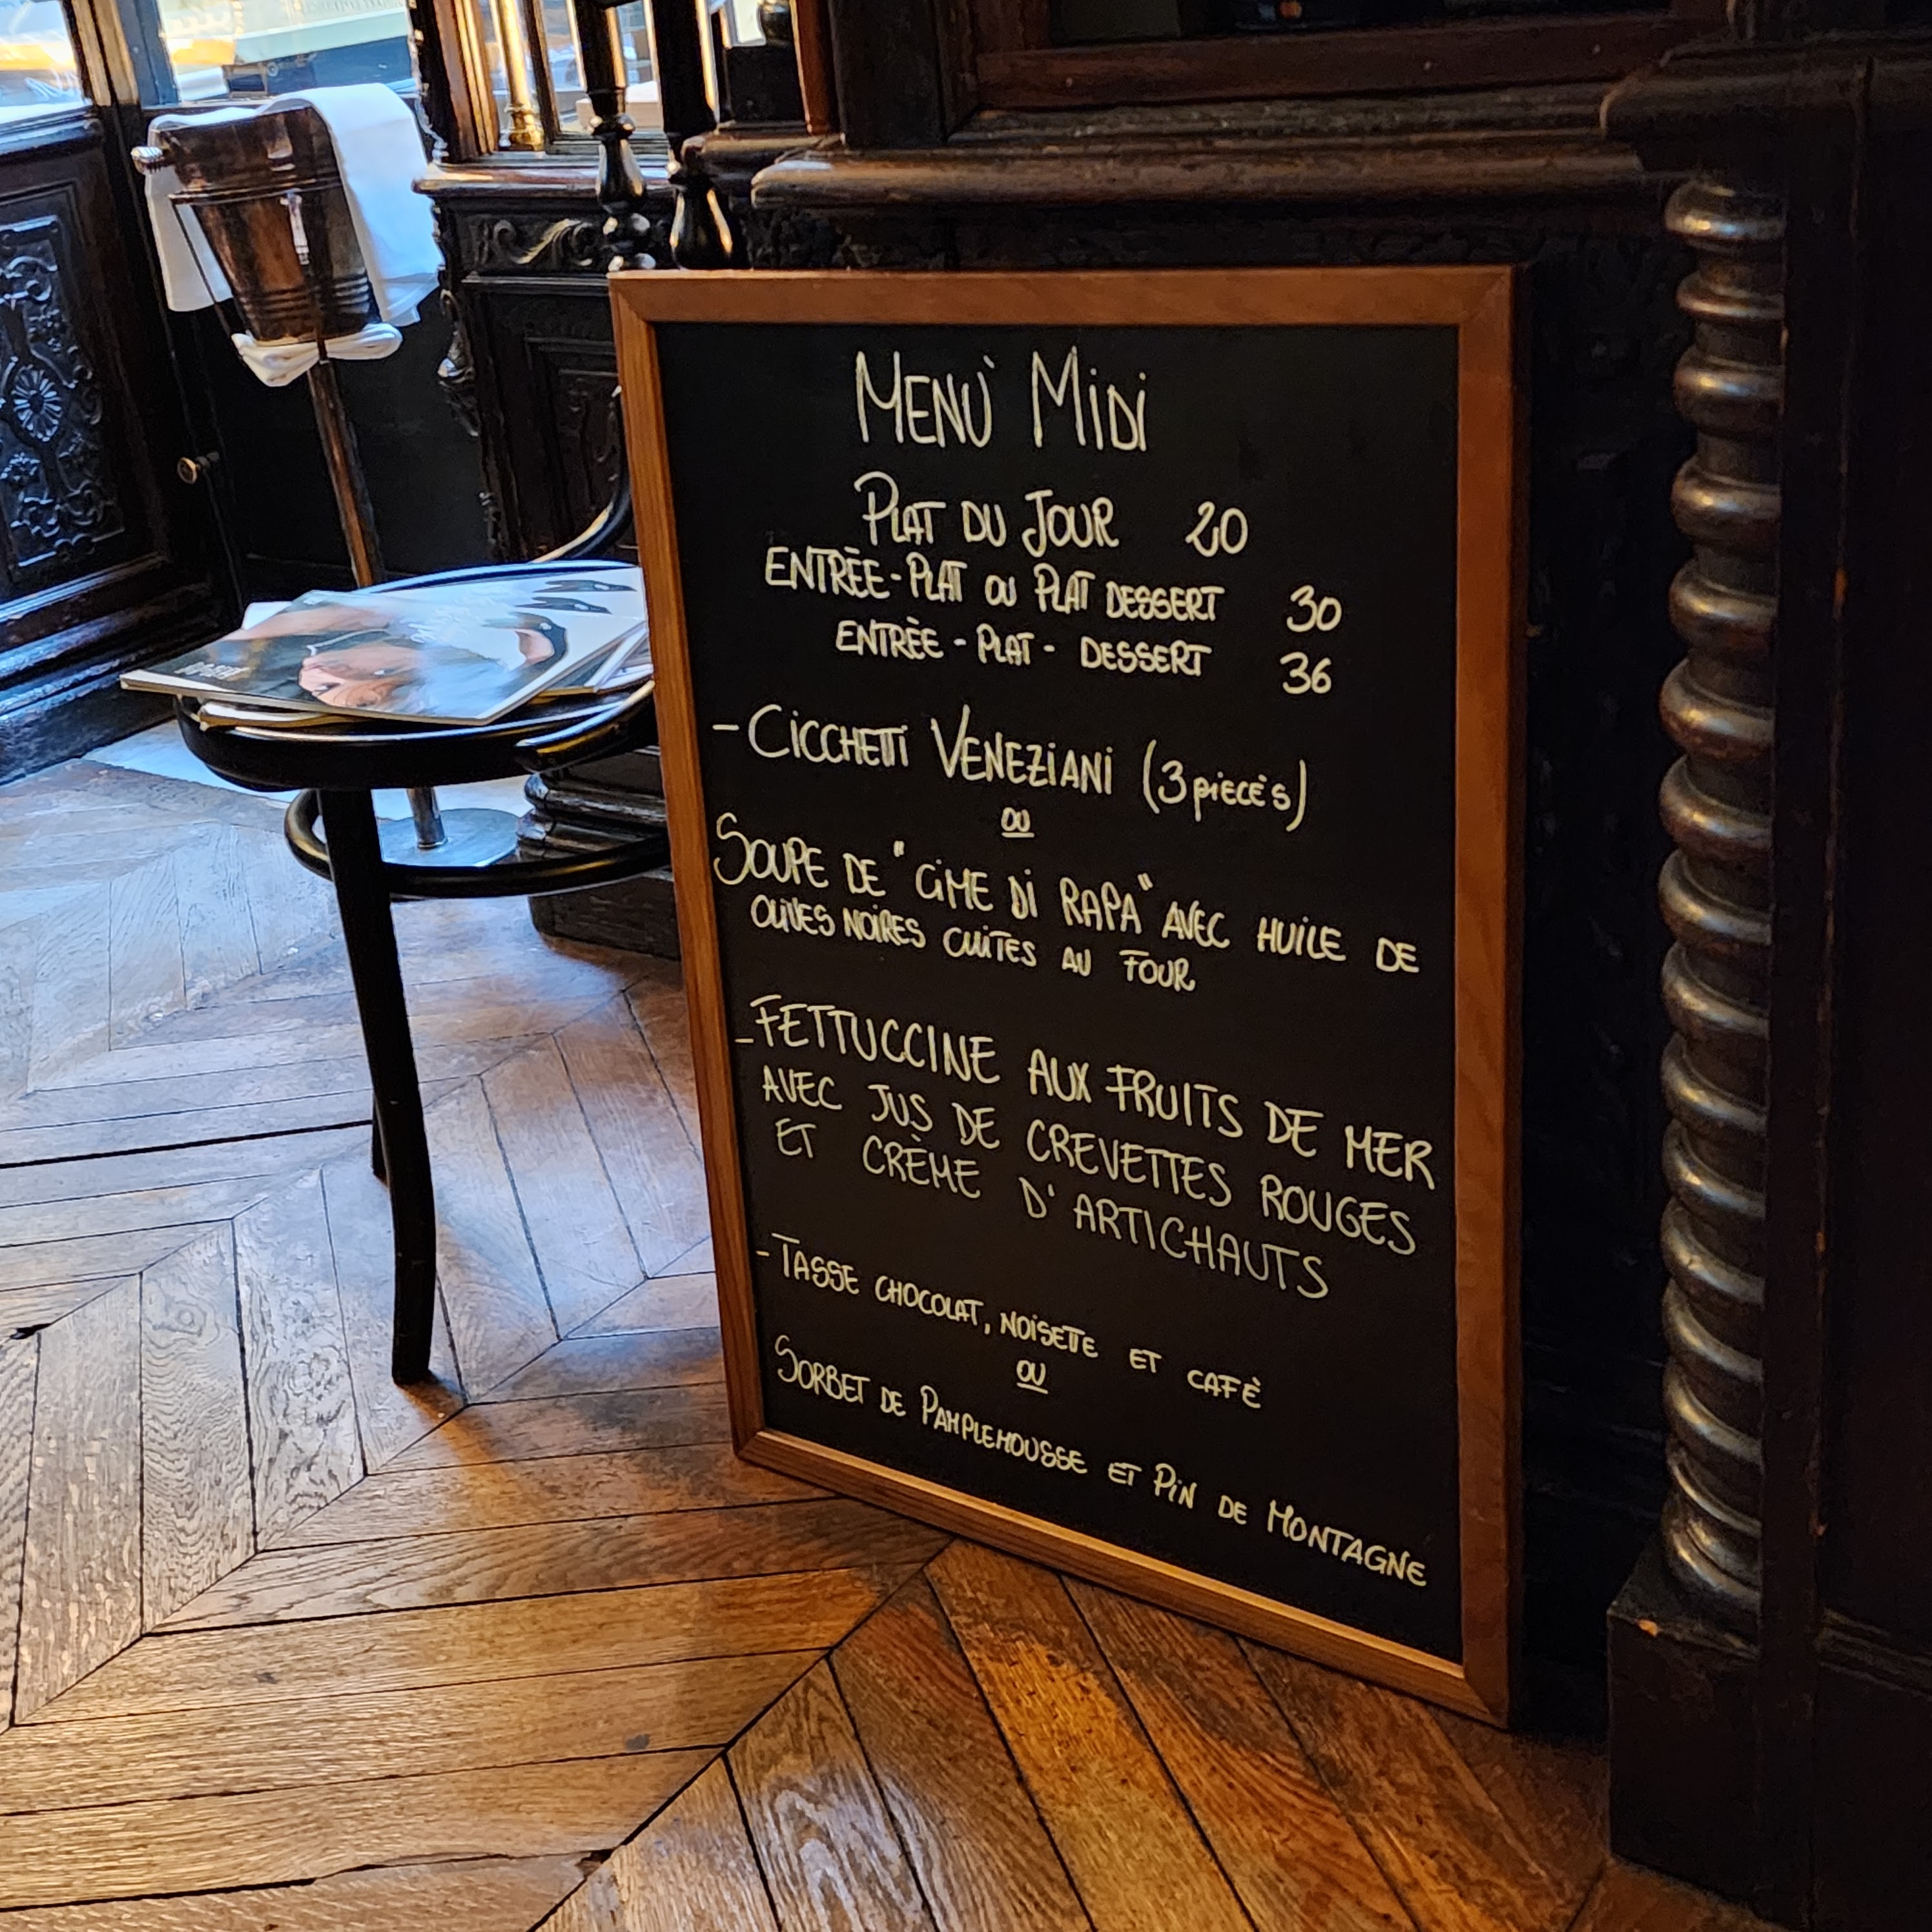 MENÙ MIDI
PLAT DU JOUR 20
ENTRÈE-PLAT OU PLAT DESSERT 30
ENTRÈE - PLAT - DESSERT 36
- CICCHETTI VENEZIANI (3 piècès)
OU
SOUPE DE "CIME DI RAPA" AVEC HUILE DE
OLIVES NOIRES CUITES AU FOUR
- FETTUCCINE AUX FRUITS DE MER
AVEC JUS DE CREVETTES ROUGES
ET CRÈME D'ARTICHAUTS
- TASSE CHOCOLAT, NOISETTE ET CAFÈ
OU
SORBET DE PAMPLEMOUSSE ET PIN DE MONTAGNE